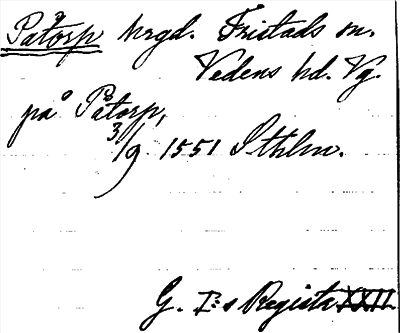 Påtorp hrgd. Fristads sn.
Vedens hd. Vg.
på Påtorp,
3/9 1551 Sthlm.
G. I:s Registr. XXII